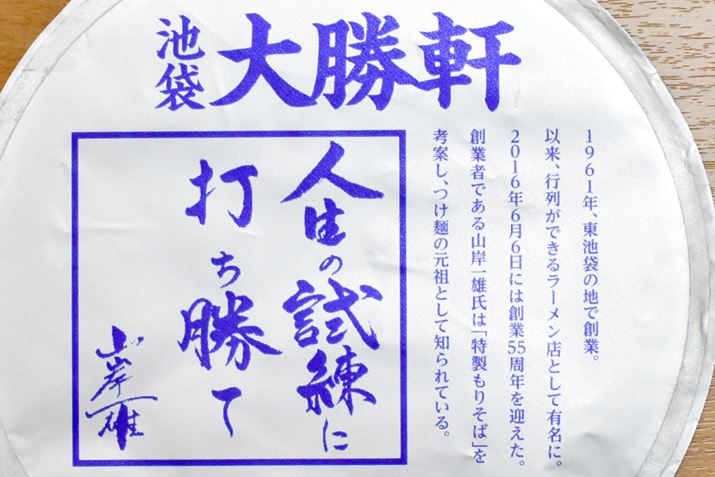 池袋
大勝軒
1961年、東池袋の地で創業。
以来、行列ができるラーメン店として有名に。
2016年6月6日には創業55周年を迎えた。
創業者である山岸一雄氏は「特製もりそば」を
考案し、つけ麺の元祖として知られている。
人生の試練に
打ち勝て
山岸一雄